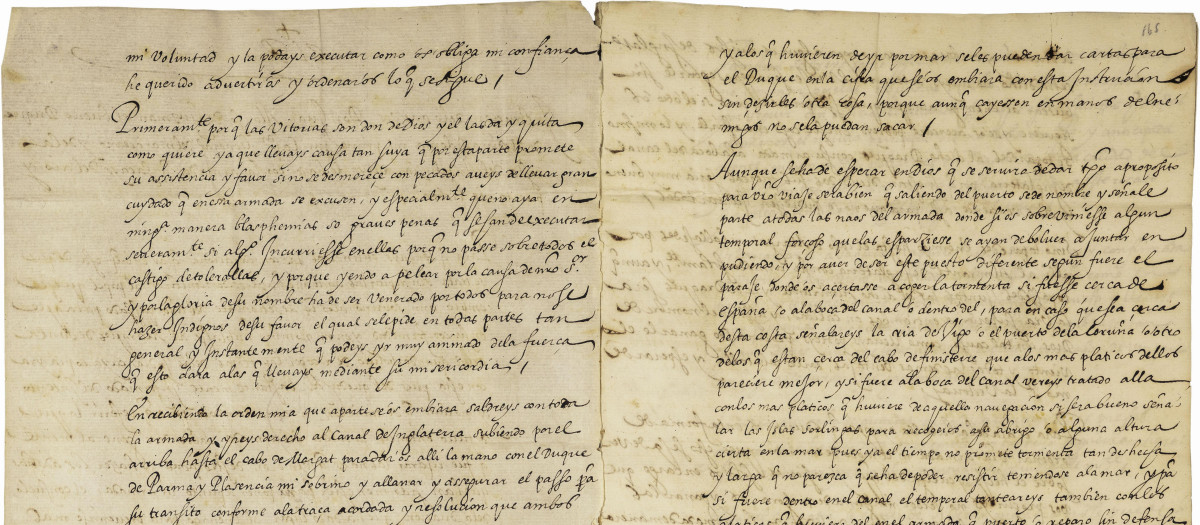 mi Voluntad y la podays executar como os obliga mi confiança
he querido advertiros y ordenaros lo q̃ se sigue /
Primeram.te porq̃ las Vitorias son don de Dios y el las da y quita
como quiere ya que llevays causa tan suya q̃ por esta parte promete
su assistencia y favor sino se desmereçe con pecados aveys de llevar gran
cuydado q̃ en essa armada se excusen, y especialm.te que no aya en
ning.a manera blasphemias so graves penas q̃ se han de executar
severam.te si alg.o Incurriesse en ellas porq̃ no passe sobre todos el
castigo de tolerallas, y porque yendo a pelear por la causa de nro S.or
y por la gloria de su nombre ha de ser venerado por todos para no se
hazer Indignos de su favor el qual se le pide en todas partes tan
general y Instantemente q̃ podeys yr muy animado de la fuerça
q̃ esto dara a las q̃ llevays mediante su misericordia /
En recibiendo la orden mia que a parte se os embiara saldreys con toda
la armada y yreys derecho al Canal de Inglaterra subiendo por el
arriba hasta el cabo de Margat para daros alli la mano con el Duque
de Parma y Plasencia mi sobrino y allanar y assegurar el passo p.a
su transito conforme a la traça acordada y resolucion que ambos
165
y a los q̃ huvieren de yr por mar se les pueden dar cartas para
el Duque en la cifra que se os embiara con esta Instrucion
sin dezirles otra cosa, porque aunq̃ cayessen en manos de Ene-
migos no se la puedan sacar /
Aunque se ha de esperar en Dios q̃ se servira de dar tpo a proposito
para vro viaje sera bien q̃ saliendo del puerto se de nombre y señale
parte a todas las naos del armada donde si os sobreviniesse algun
temporal forçoso que las esparziesse se ayan de bolver a juntar en
pudiendo, y por aver de ser este puesto diferente segun fuere el
paraje donde os açertasse a coger la tormenta si fuesse cerca de
españa o a la boca del canal o dentro del, para en caso que sea cerca
desta costa señalareys la ria de Vigo o el puerto de la Coruña o otro
de los q̃ estan çerca del cabo de finisterre que a los mas platicos dellos
pareciere mejor, y si fuere a la boca del canal vereys tratado alla
con los mas platicos q̃ huviere de aquella navegacion si sera bueno seña-
lar las Islas sorlingas para recogeros a su abrigo o alguna altura
cierta en la mar pues ya el tiempo no promete tormenta tan deshecha
y larga q̃ no parezca q̃ se ha de poder resistir teniendose a la mar, y p.a
si fuere dentro en el canal el temporal tanteareys tambien con los
platicos q̃ huviere del en el armada q̃ puerto o reparo sin defensa